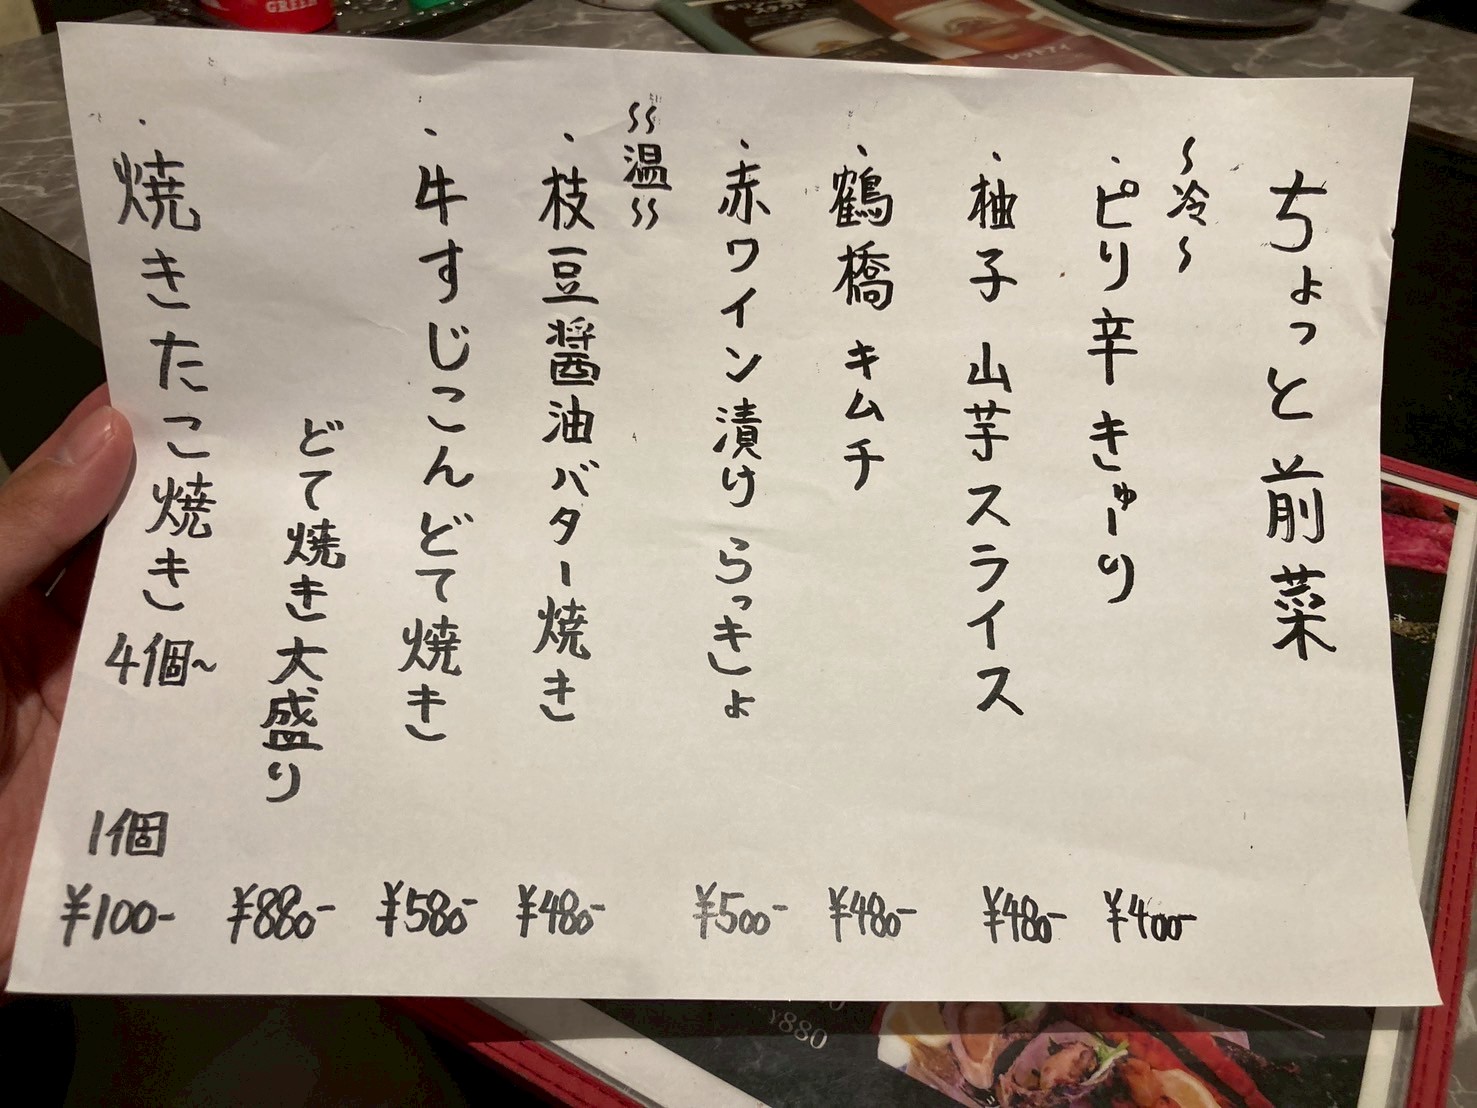 ちょっと前菜
〜冷〜
・ピリ辛きゅーり ¥400-
・柚子山芋スライス ¥480-
・鶴橋キムチ ¥480-
・赤ワイン漬けらっきょ ¥500-
〜〜温〜〜
・枝豆醤油バター焼き ¥480-
・牛すじこんどて焼き ¥580-
どて焼き大盛り ¥880-
・焼きたこ焼き 4個~ 1個 ¥100-
GREEN
レッドアイ
¥880